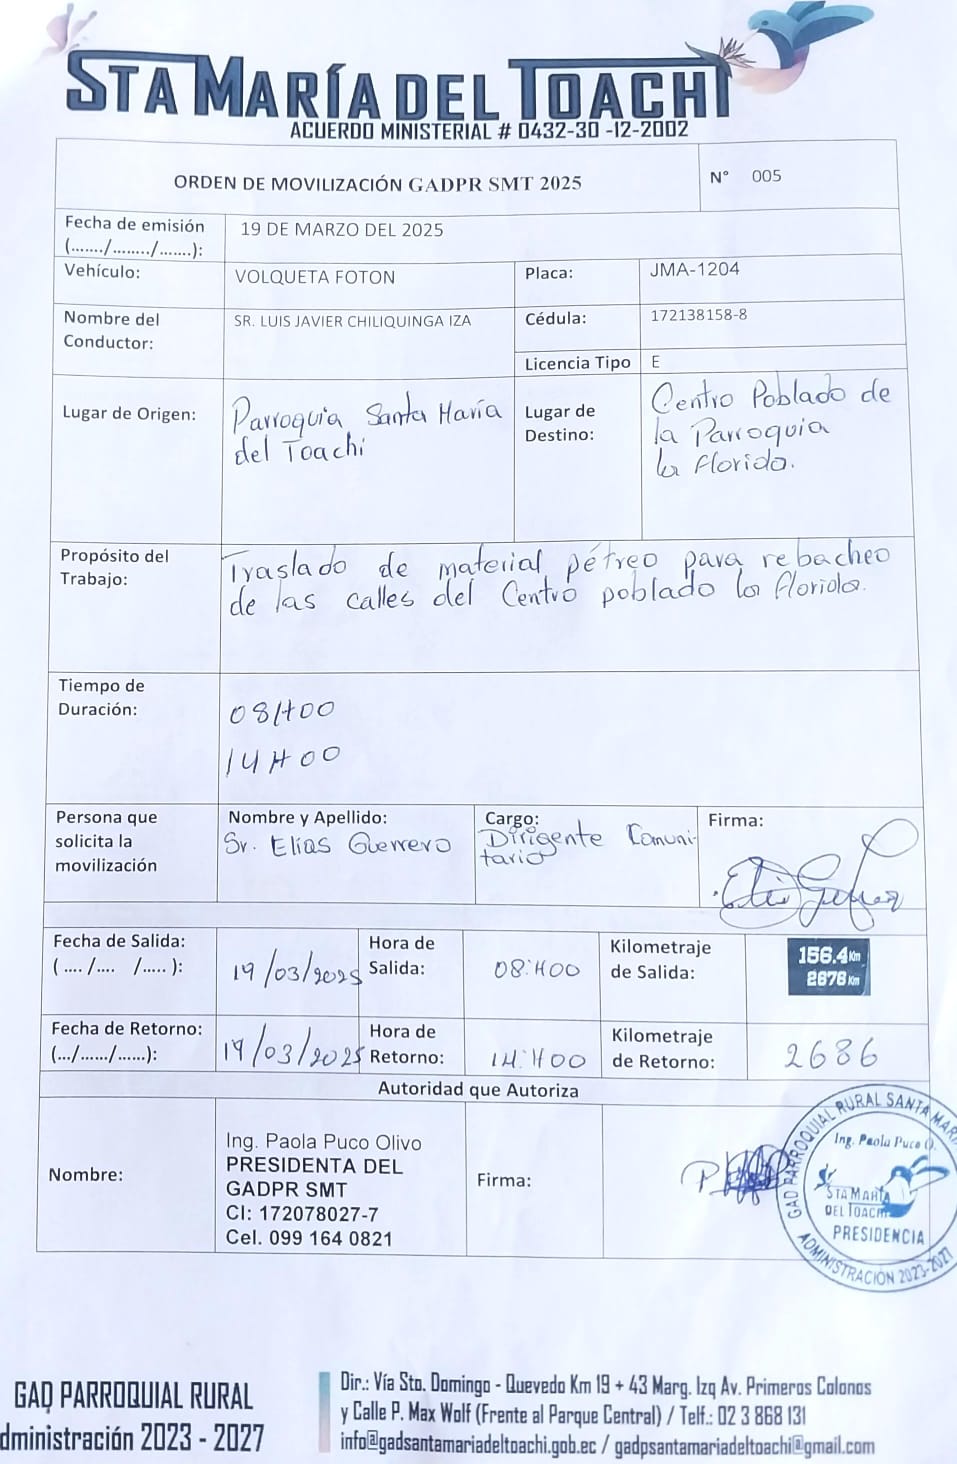 STA MARÍA DEL TOACHI
ACUERDO MINISTERIAL # 0432-30 -12-2002
ORDEN DE MOVILIZACIÓN GADPR SMT 2025
N° 005
Fecha de emisión
(......./......../.......):
19 DE MARZO DEL 2025
Vehículo:
VOLQUETA FOTON
Placa:
JMA-1204
Nombre del
Conductor:
SR. LUIS JAVIER CHILIQUINGA IZA
Cédula:
172138158-8
Licencia Tipo
E
Lugar de Origen:
Parroquia Santa María
del Toachi
Lugar de
Destino:
Centro Poblado de
la Parroquia
la Florida.
Propósito del
Trabajo:
Traslado de material pétreo para rebacheo
de las calles del Centro poblado la Florida.
Tiempo de
Duración:
08H00
14H00
Persona que
solicita la
movilización
Nombre y Apellido:
Sr. Elías Guerrero
Cargo:
Dirigente Comuni-
tario
Firma:
Fecha de Salida:
( .... /.... /..... ):
19/03/2025
Hora de
Salida:
08:H00
Kilometraje
de Salida:
156.4 Km
2676 Km
Fecha de Retorno:
(.../....../......):
19/03/2025
Hora de
Retorno:
14:H00
Kilometraje
de Retorno:
2686
Autoridad que Autoriza
Nombre:
Ing. Paola Puco Olivo
PRESIDENTA DEL
GADPR SMT
CI: 172078027-7
Cel. 099 164 0821
Firma:
GAD PARROQUIAL RURAL SANTA MARÍ
Ing. Paola Puco O.
STA MARÍA
DEL TOACHI
PRESIDENCIA
ADMINISTRACIÓN 2023-2027
GAD PARROQUIAL RURAL
dministración 2023 - 2027
Dir.: Vía Sto. Domingo - Quevedo Km 19 + 43 Marg. Izq Av. Primeros Colonos
y Calle P. Max Wolf (Frente al Parque Central) / Telf.: 02 3 868 131
info@gadsantamariadeltoachi.gob.ec / gadpsantamariadeltoachi@gmail.com